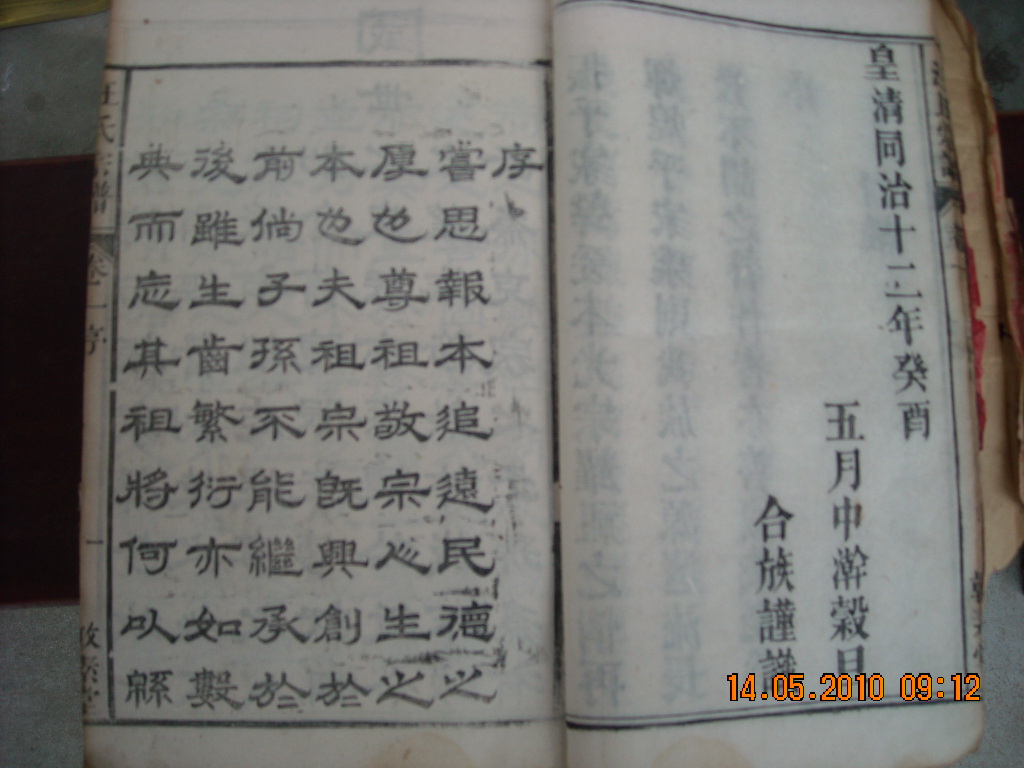 皇清同治十二年癸酉
五月中澣穀旦
合族謹識
序
嘗思報本追遠民德之
厚也尊祖敬宗心生之
本也夫祖宗旣興創於
前倘子孫不能繼承於
後雖生齒繁衍亦如數
典而忘其祖將何以緜
汪氏宗譜
卷一序
一
14.05.2010 09:12